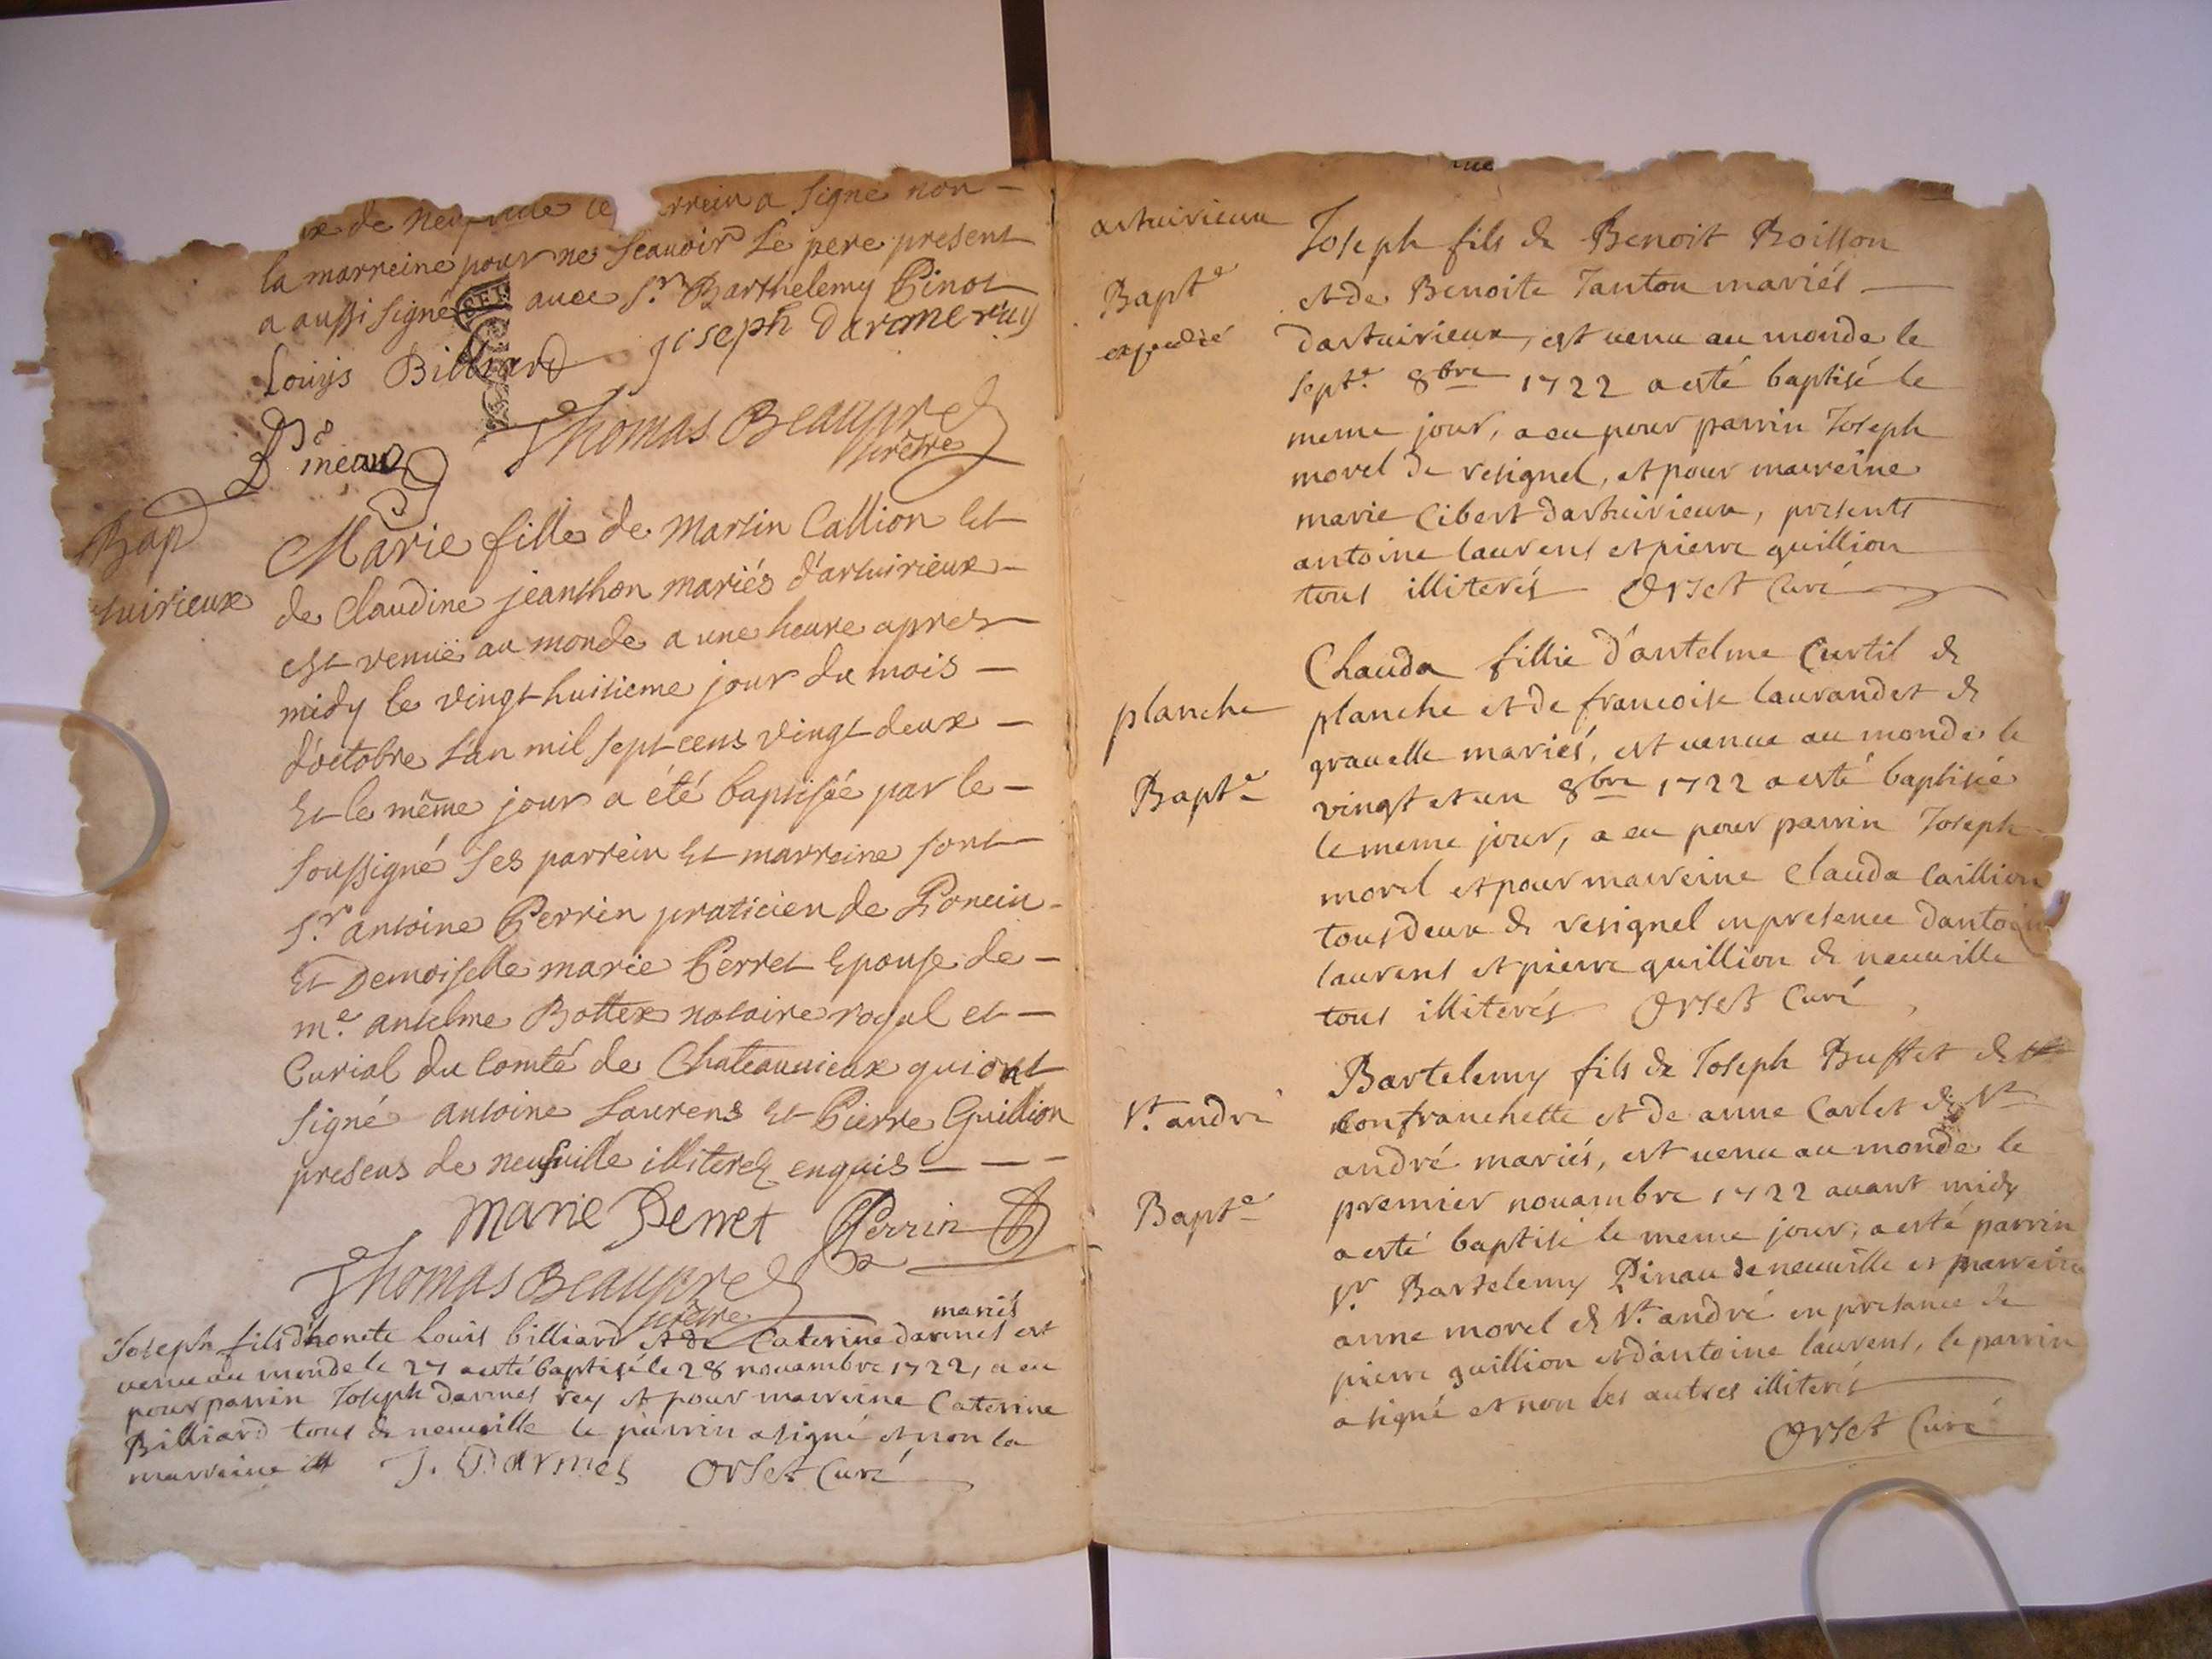 de neufville le rrein a signé non
la marreine pour ne scauoir le pere present
a aussi signé auec Sr. Barthelemy Pinot
Louijs Billiard joseph darme
Thomas Beaupre
prêtre
Bap
tuirieux
Marie fille de Martin Callion Et
de Claudine jeanthon mariés d'artuirieux
est venuë au monde a une heure apres
midy le vingt huitieme jour du mois
d'octobre l'an mil sept cens vingt deux
Et le même jour a été baptisée par le
soussigné ses parrein Et marreine sont
Sr. antoine Perrin praticien de Poncin
Et Demoiselle marie Perret Epouse de
me. antelme Bottex notaire royal et
Curial du Comté de Chateauuieux qui ont
signé antoine Laurens Et Pierre Guillion
presens de neufuille illiterez enquis
Marie Perret Perrin
Thomas Beaupre
prêtre
mariés
Joseph fils d'honete Louis billiard et de Caterine darmes est
venu au monde le 27 a esté baptisé le 28 nouambre 1722, a eu
pour parrin Joseph darmes rey et pour marreine Caterine
Billiard tous de neuuille le parrin a signé et non la
marreine J. Darmes Orset Curé
artuirieux
Bapte
expedié
Joseph fils de Benoit Boisson
et de Benoite Janton mariés
dartuirieux, est uenu au monde le
septe. 8bre 1722 a esté baptisé le
meme jour, a eu pour parrin Joseph
morel de resignel, et pour marreine
marie Cibert dartuirieux, presents
antoine laurens et pierre guillion
tous illiterés Orset Curé
planche
Bapte
Clauda fillie d'antelme Curtil de
planche et de francoise laurandet de
grauelle mariés, est uenue au monde le
vingt et un 8bre 1722 a esté baptisée
le meme jour, a eu pour parrin Joseph
morel et pour marreine Clauda Caillion
tous deux de resignel en presence dantoin
laurens et pierre guillion de neuuille
tous illiterés Orset Curé
St. andré
Bapte
Bartelemy fils de Joseph Buffet de
Confranchette et de anne Carlet de St
andré mariés, est uenu au monde le
premier nouambre 1722 auant midy
a esté baptisé le meme jour; a esté parrin
Sr. Bartelemy Pinau de neuuille et marreine
anne morel de St. andré en presance de
pierre guillion et d'antoine laurens, le parrin
a signé et non les autres illiterés
Orset Curé